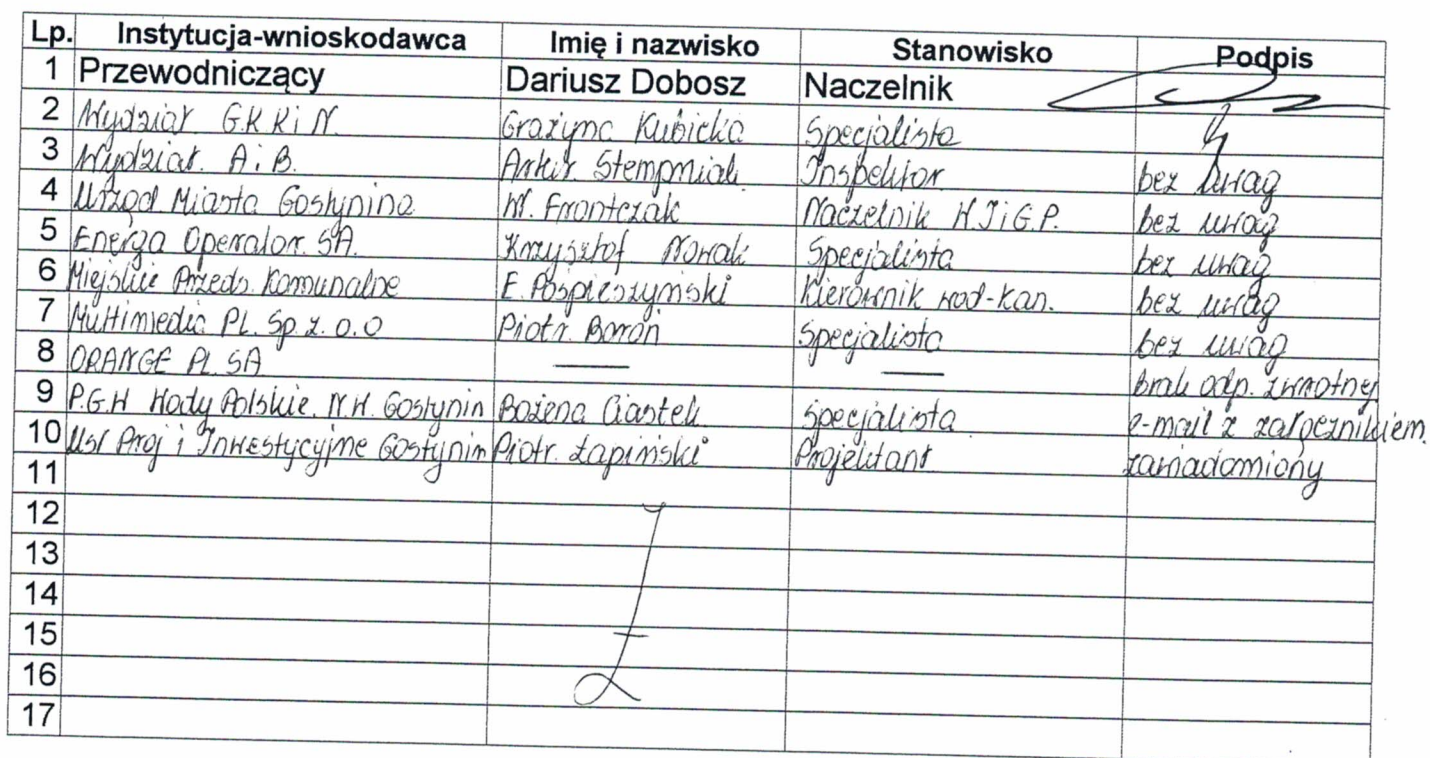 Lp. Instytucja-wnioskodawca Imię i nazwisko Stanowisko Podpis
1 Przewodniczący Dariusz Dobosz Naczelnik
2 Wydział G.K.K i N. Grażyna Kubicka Specjalista
3 Wydział A.i B. Artur Stempniak Inspektor bez uwag
4 Urząd Miasta Gostynina W. Frontczak Naczelnik W.I i G.P. bez uwag
5 Energa Operator. SA. Krzysztof Nowak Specjalista bez uwag
6 Miejskie Przeds. Komunalne E. Pospieszyński Kierownik wod-kan. bez uwag
7 Multimedia PL. Sp. z. o.o Piotr Boroń Specjalista bez uwag
8 ORANGE PL. SA — — brak odp. zwrotnej
9 P.G.W Wody Polskie. N.W. Gostynin Bożena Ciastek Specjalista e-mail z załącznikiem.
10 Usł Proj i Inwestycyjne Gostynin Piotr. Łapiński Projektant zawiadomiony
11
12
13
14
15
16
17